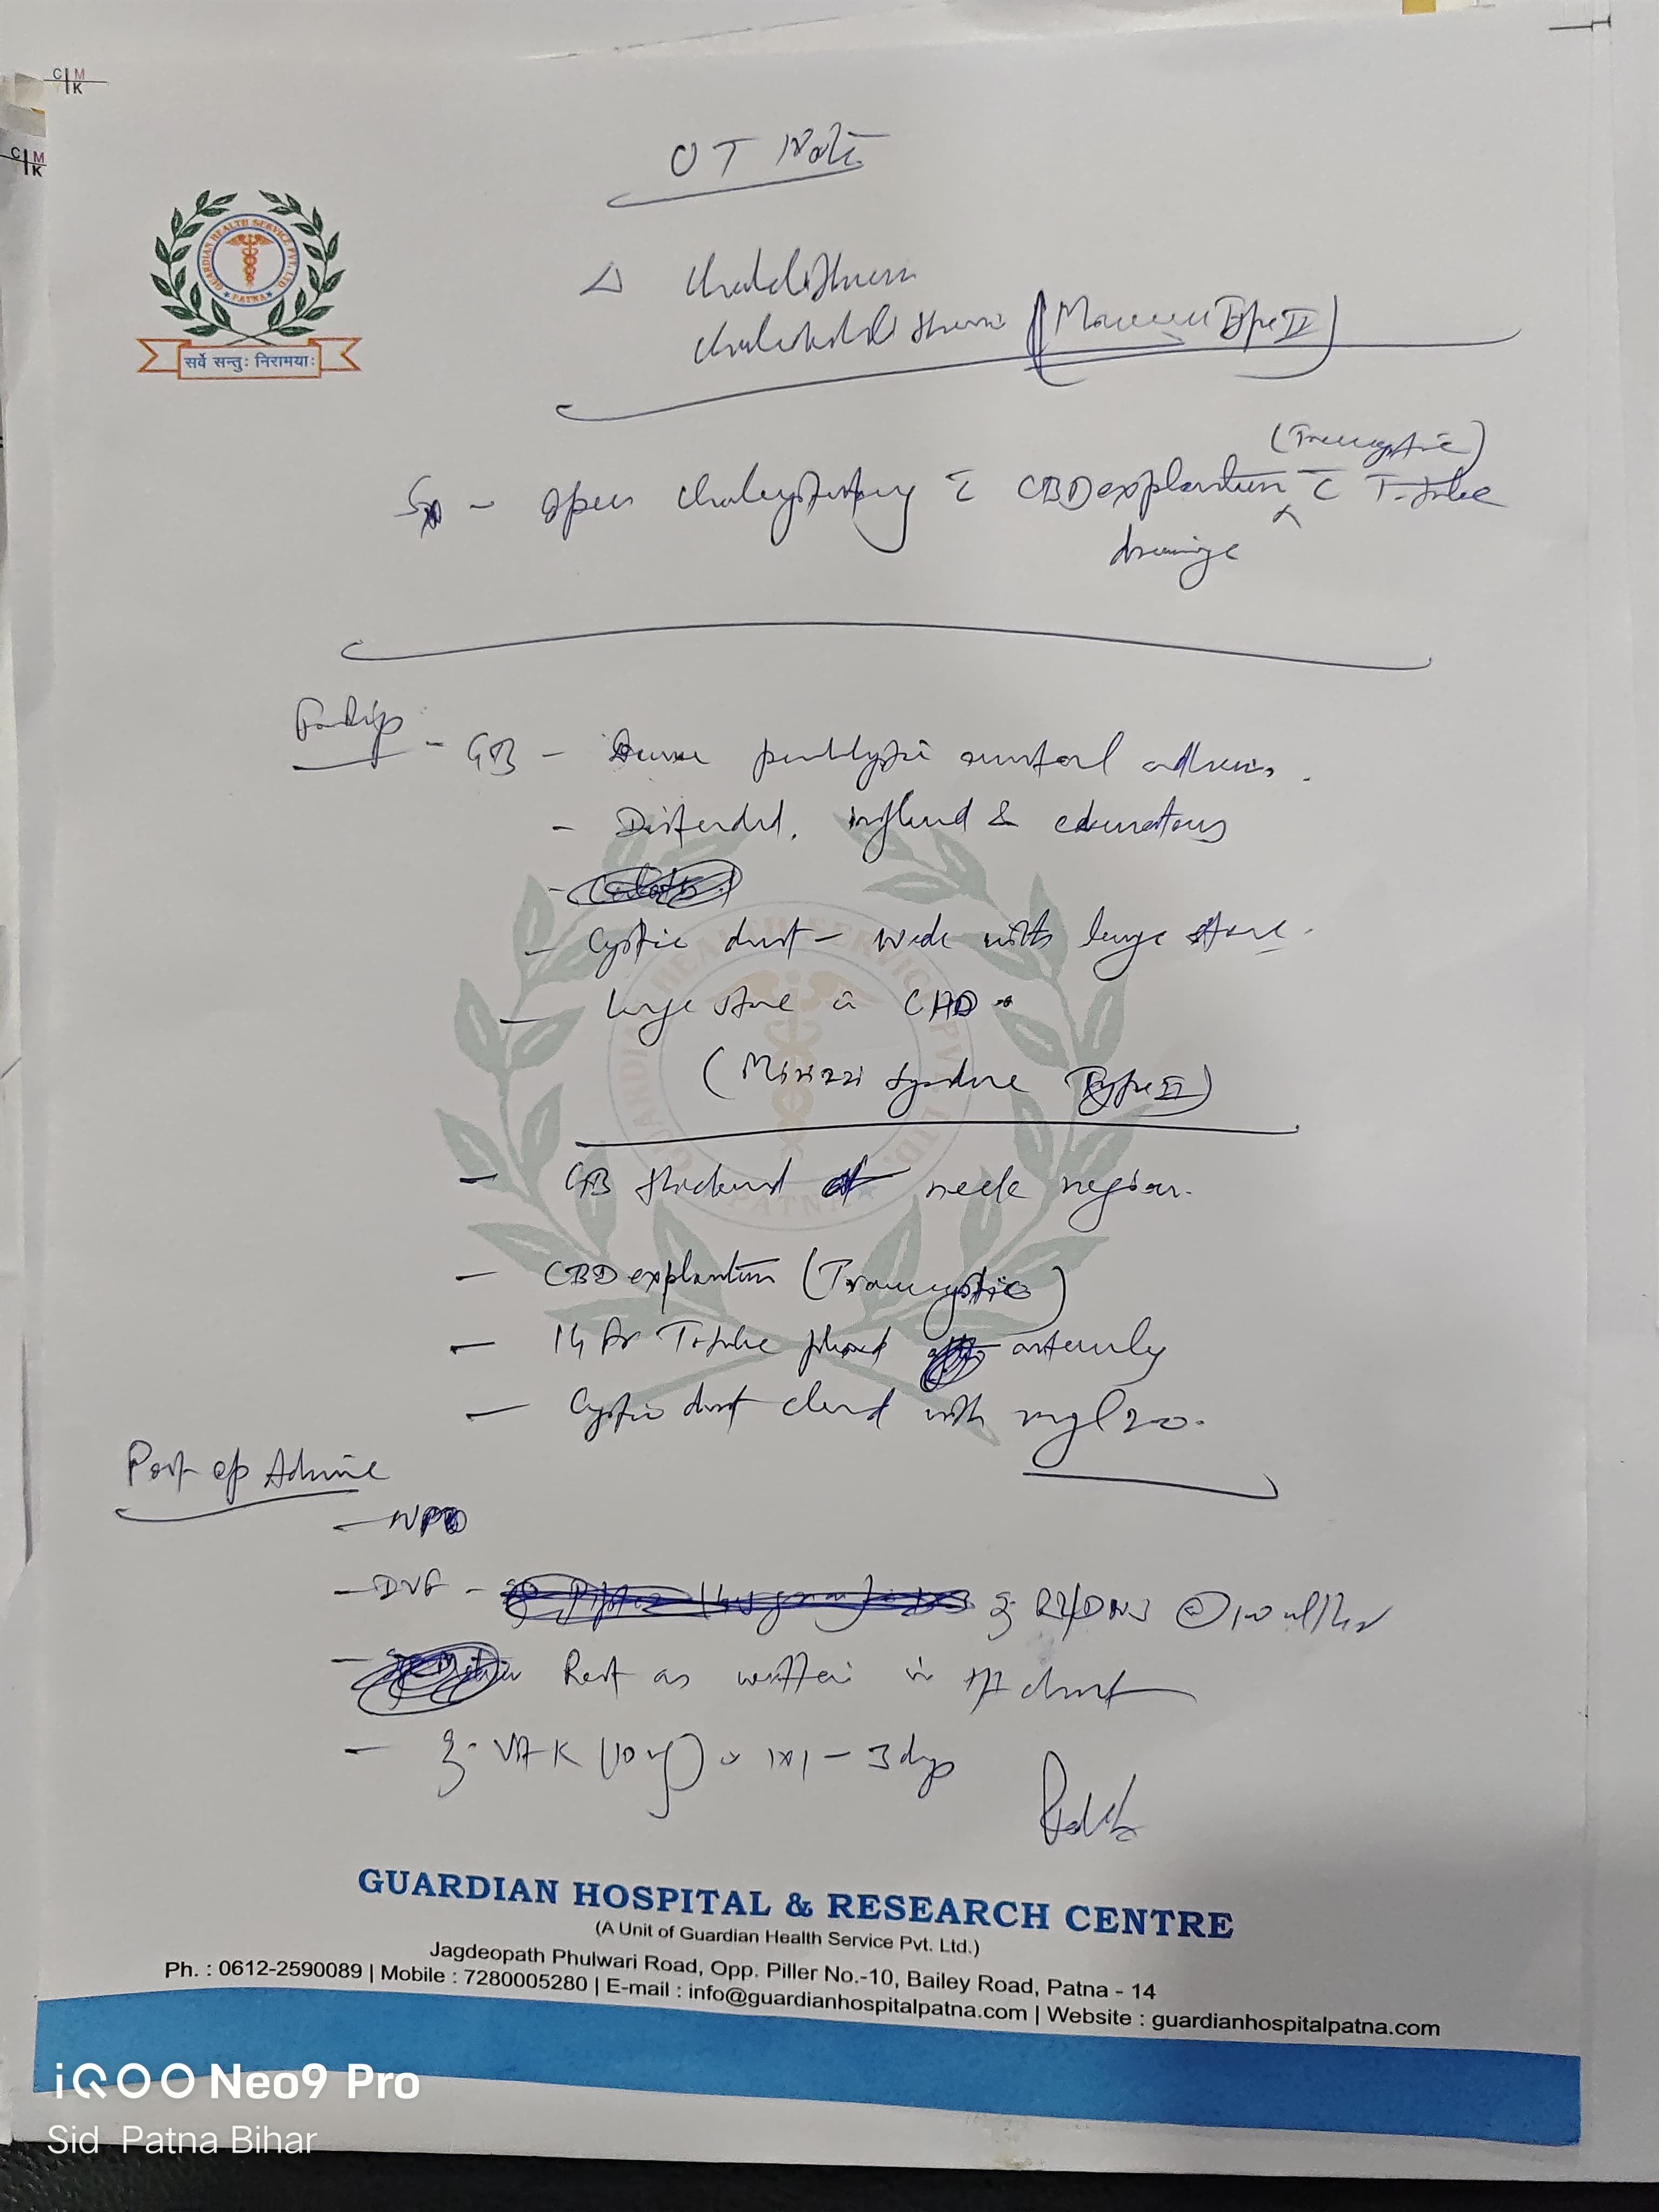 C M
K
C M
K
OT Note
GUARDIAN HEALTH SERVICE PVT. LTD.
PATNA
सर्वे सन्तुः निरामयाः
Δ Cholelithiasis
Choledocholithiasis (Type II)
(Transcystic)
Sx - Open Cholecystectomy c̄ CBD exploration c̄ T-tube
drainage
Findings - GB - Dense adhesions.
- Distended, inflamed & edematous
- Cystic duct - wide with large stone.
- large stone in CHD
(Mirizzi Syndrome Type II)
- GB thickened at neck region.
- CBD exploration (Transcystic)
- 14 Fr T-tube placed
- Cystic duct closed with vicryl 2-0.
Post op Advice
- NPO
- IVF - RL/DNS @ 100 ml/hr
- Rest as written in chart
- Vit K (10 mg) 1x1 - 3 days
GUARDIAN HOSPITAL & RESEARCH CENTRE
(A Unit of Guardian Health Service Pvt. Ltd.)
Jagdeopath Phulwari Road, Opp. Piller No.-10, Bailey Road, Patna - 14
Ph. : 0612-2590089 | Mobile : 7280005280 | E-mail : info@guardianhospitalpatna.com | Website : guardianhospitalpatna.com
iQOO Neo9 Pro
Sid Patna Bihar